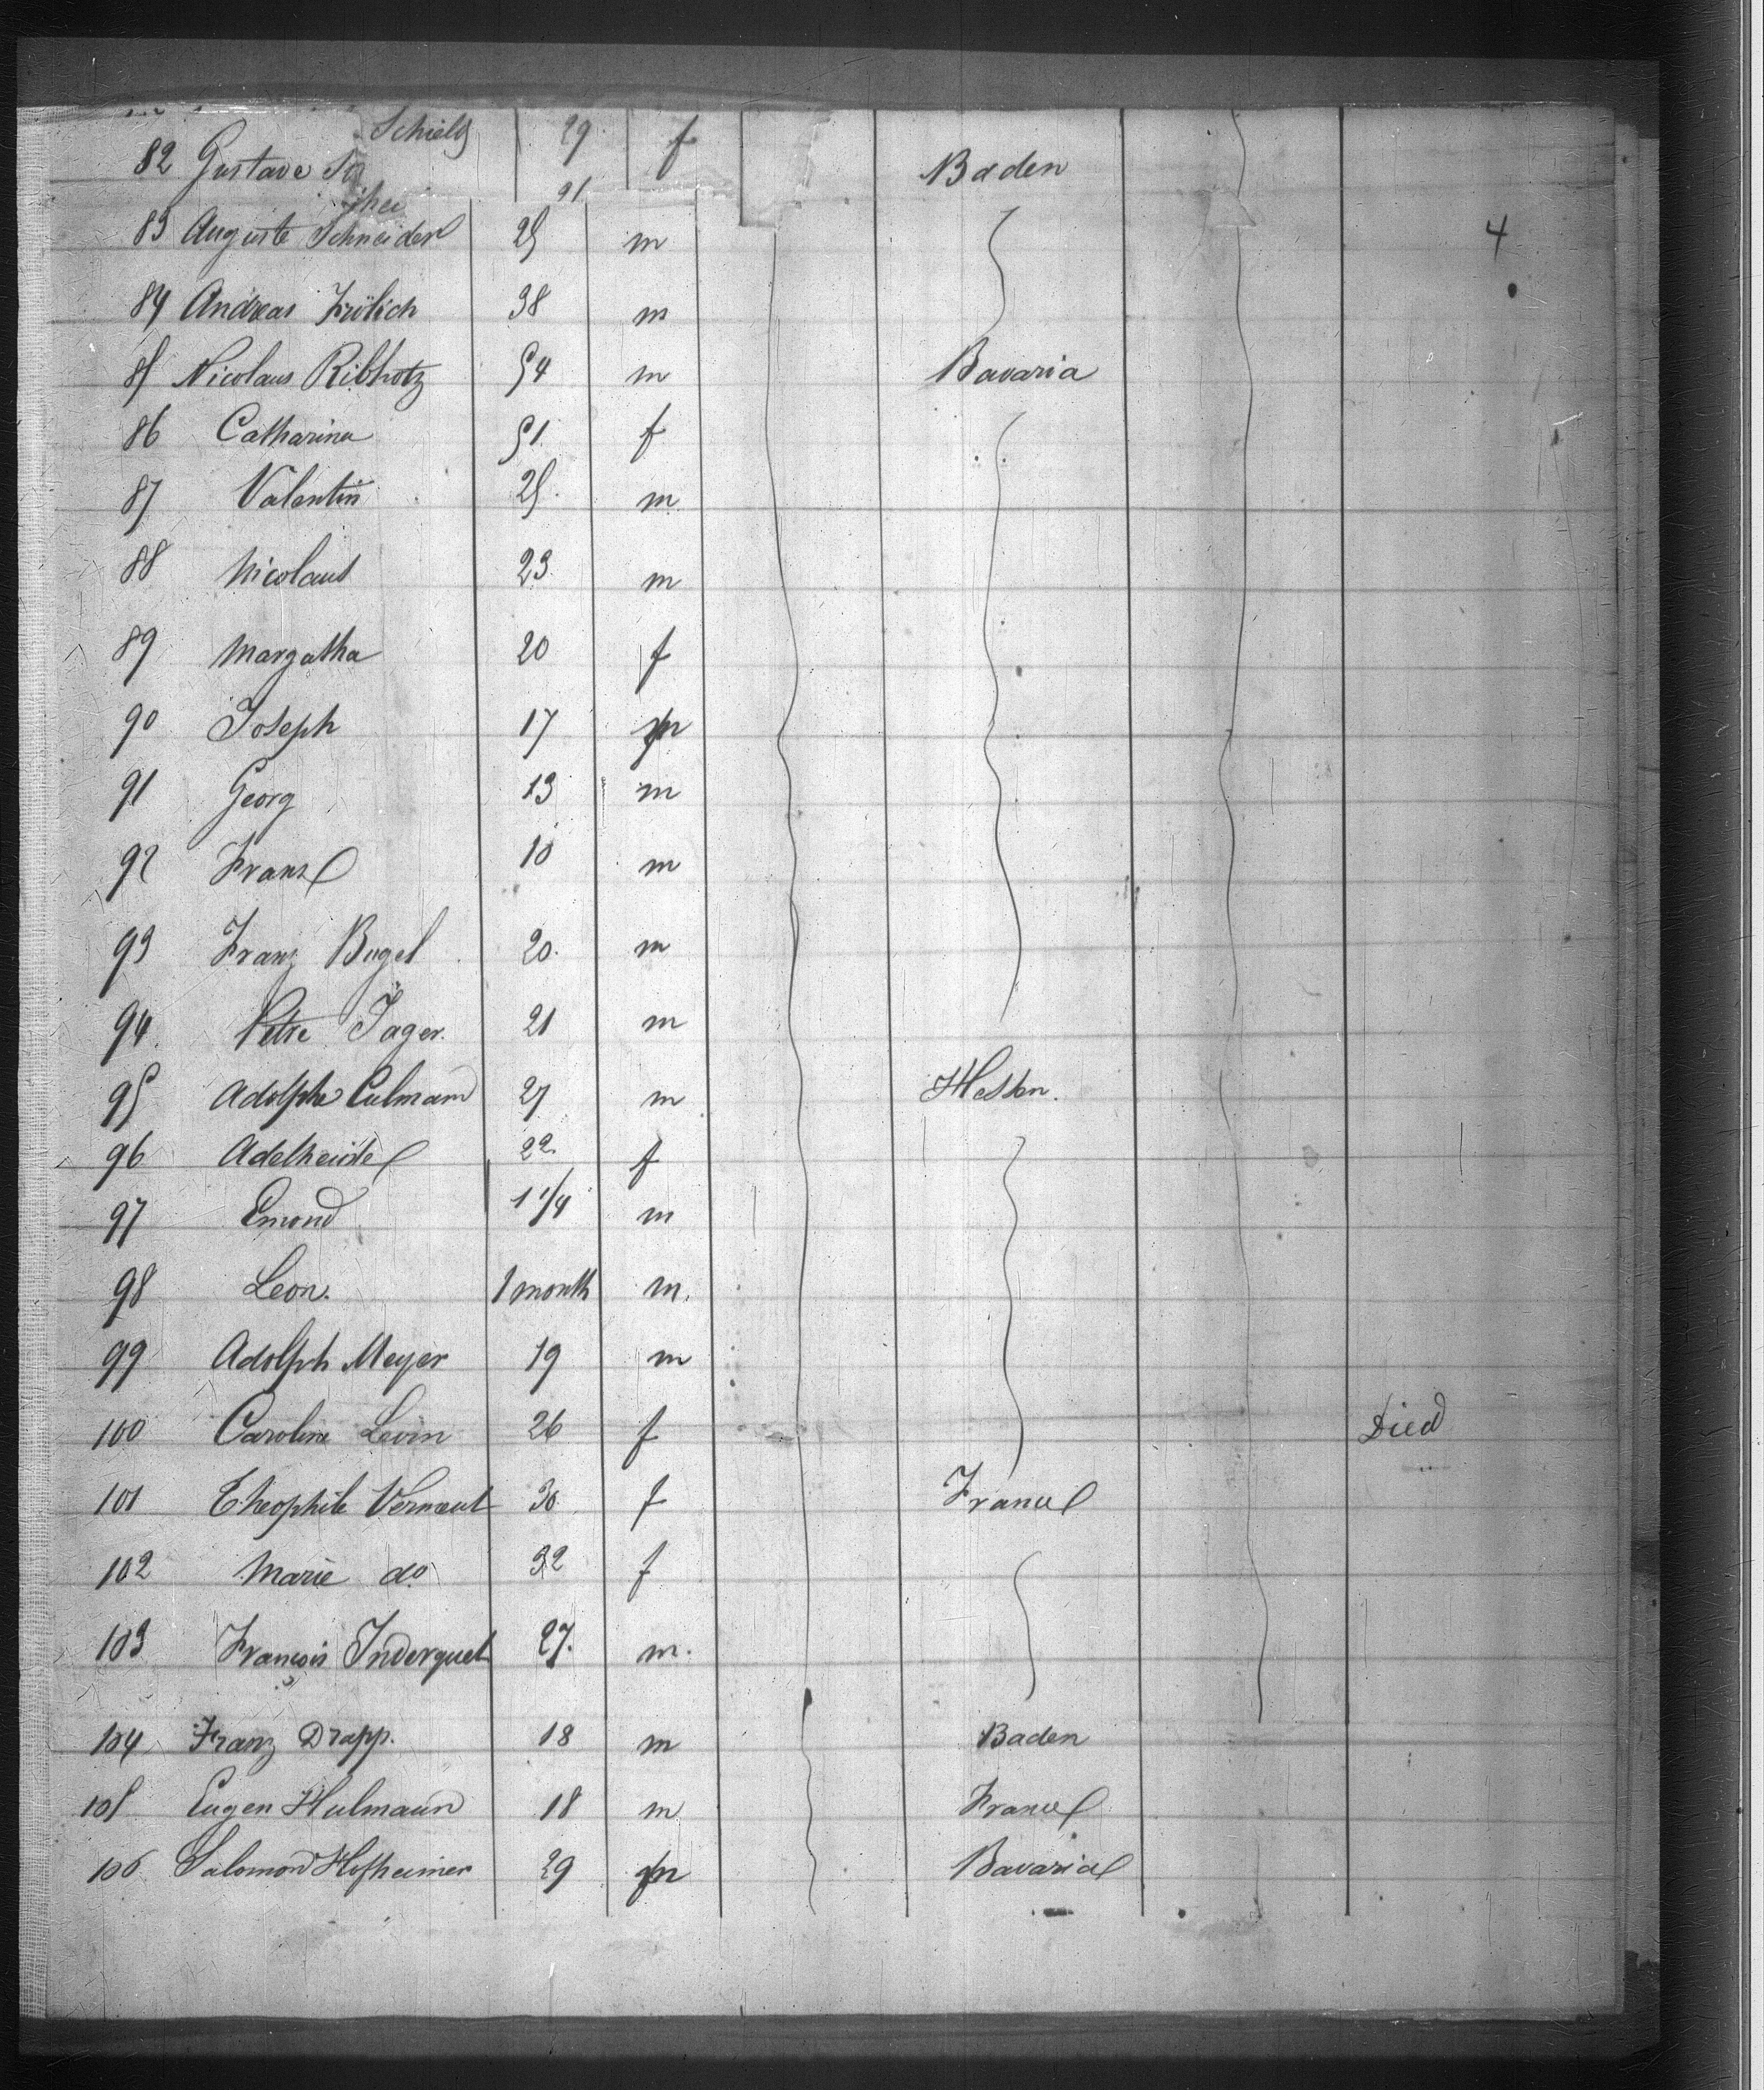 Schielz 29 f
82 Gustave Baden
91
83 Auguste Schneider 25 m 4
84 Andreas Frölich 38 m
85 Nicolaus Ribhotz 54 m Bavaria
86 Catharina 51 f
87 Valentin 25 m
88 Nicolaus 23 m
89 Margatha 20 f
90 Joseph 17 m
91 Georg 13 m
92 Franz 10 m
93 Franz Bugel 20 m
94 Petre Jager 21 m
95 Adolphe Culmann 27 m Hessen.
96 Adelheide 22 f
97 Emond 1 1/4 m
98 Leon. 1 month m.
99 Adolph Meyer 19 m
100 Caroline Levin 26 f Died
101 Theophile 30 f France
102 Marie do 32 f
103 François Inderquet 27. m.
104 Franz Drapp. 18 m Baden
105 Eugen Hulmann 18 m France
106 Salomon Hofheimer 29 m Bavaria